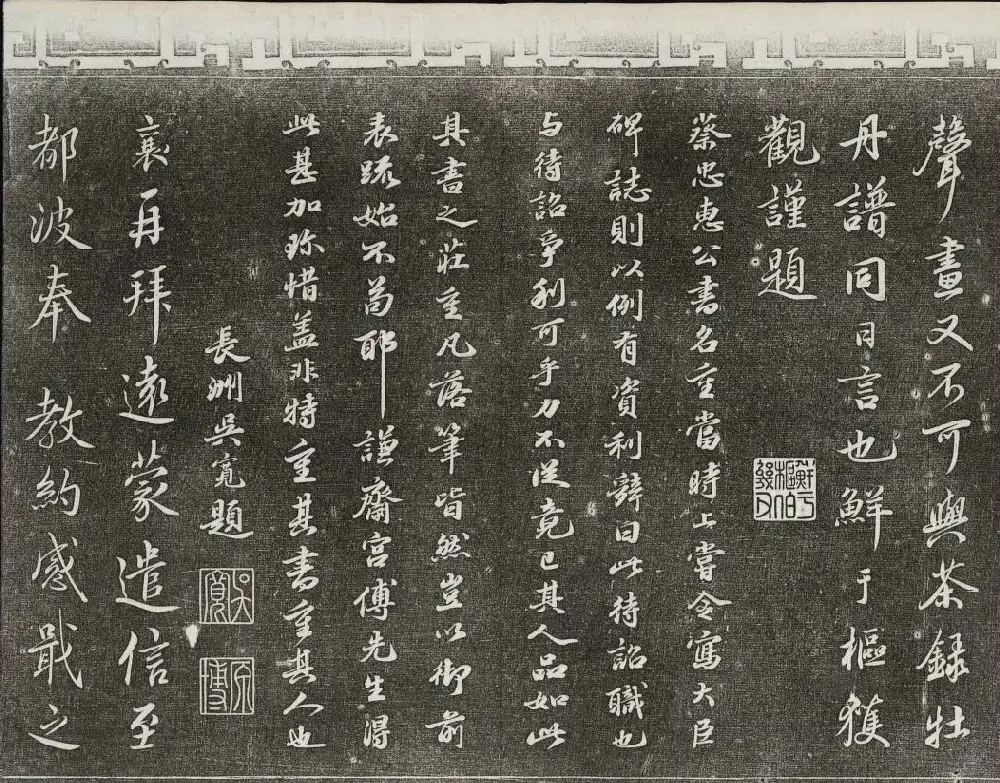 聲畫又不可與茶録牡
丹譜同日言也鮮于樞獲
觀謹題
蔡忠惠公書名重當時上嘗令寫大臣
碑誌則以例有資利辭曰此待詔職也
与待詔争利可乎力不從竟已其人品如此
其書之莊重凡落筆皆然豈以御前
表疏始不苟耶謙齋宫傅先生得
此甚加珎惜盖非特重其書重其人也
長洲吳寬題
吳寬
原博
襄再拜遠蒙遣信至
都波奉教約感戢之